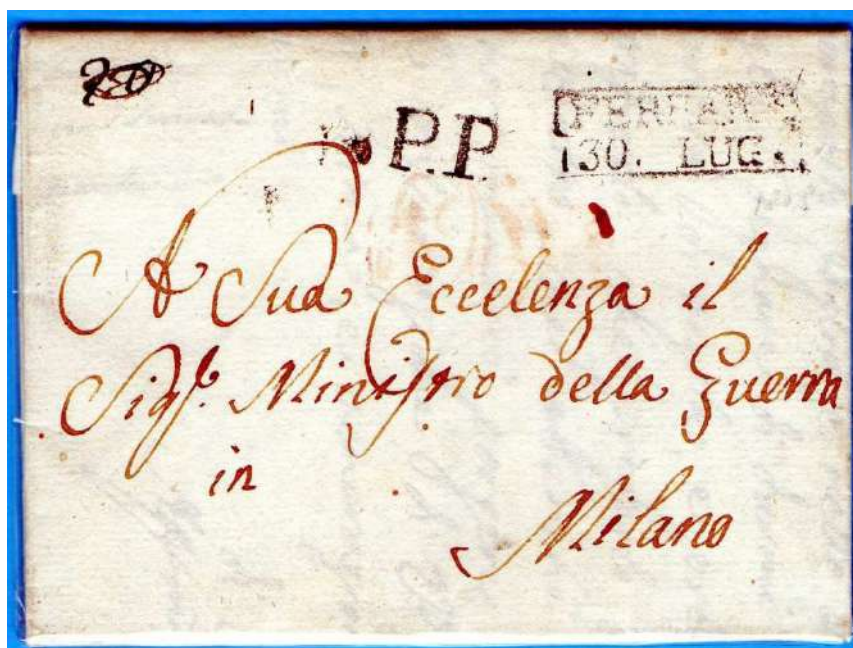 P.P.
30. LUG.
A Sua Eccelenza il
Sigr. Ministro della Guerra
in
Milano